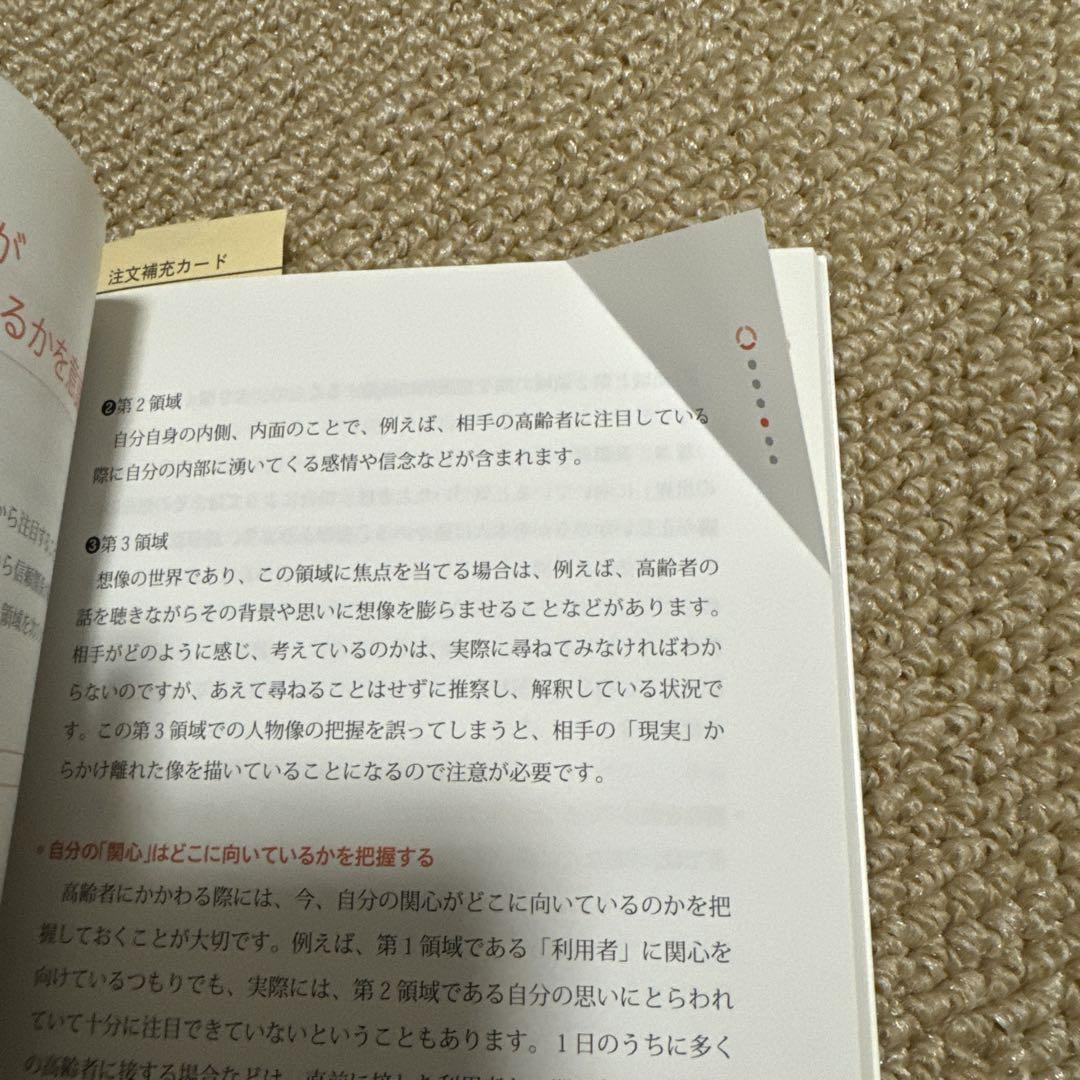 が
るかを意
から注目する
ら信頼関係
領域を次
注文補充カード
❷第2領域
自分自身の内側、内面のことで、例えば、相手の高齢者に注目している
際に自分の内部に湧いてくる感情や信念などが含まれます。
❸第3領域
想像の世界であり、この領域に焦点を当てる場合は、例えば、高齢者の
話を聴きながらその背景や思いに想像を膨らませることなどがあります。
相手がどのように感じ、考えているのかは、実際に尋ねてみなければわか
らないのですが、あえて尋ねることはせずに推察し、解釈している状況で
す。この第3領域での人物像の把握を誤ってしまうと、相手の「現実」か
らかけ離れた像を描いていることになるので注意が必要です。
• 自分の「関心」はどこに向いているかを把握する
高齢者にかかわる際には、今、自分の関心がどこに向いているのかを把
握しておくことが大切です。例えば、第1領域である「利用者」に関心を
向けているつもりでも、実際には、第2領域である自分の思いにとらわれ
ていて十分に注目できていないということもあります。1日のうちに多く
の高齢者に接する場合などは、直前に接した利用者